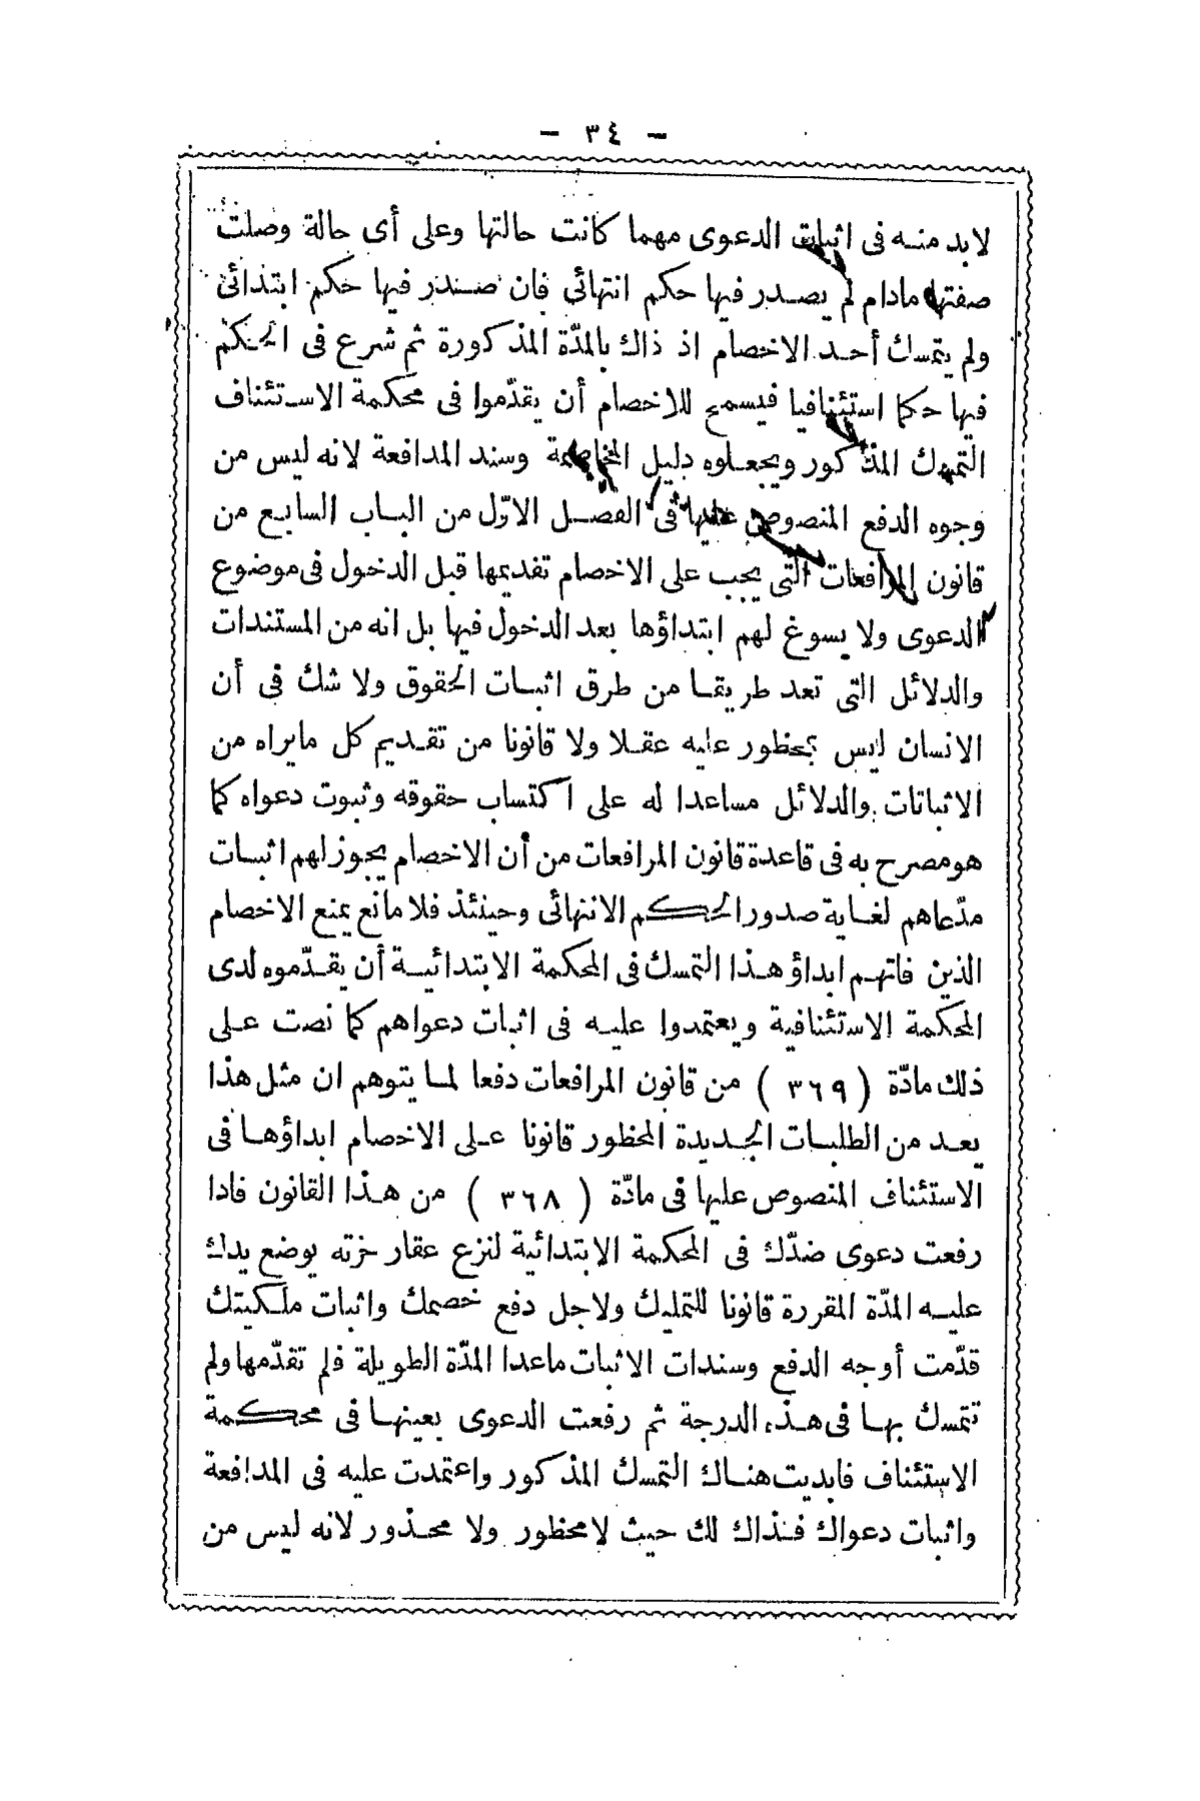 — ٣٤ —
لابد منه فى اثبات الدعوى مهما كانت حالتها وعلى أى حالة وصلت
صفتها مادام لم يصدر فيها حكم انتهائى فان صدر فيها حكم ابتدائى
ولم يتمسك أحد الاخصام اذ ذاك بالمدّة المذكورة ثم شرع فى الحكم
فيها حكما استئنافيا فيسمح للاخصام أن يقدّموا فى محكمة الاستئناف
التمسك المذكور ويجعلوه دليل المخاصمة وسند المدافعة لانه ليس من
وجوه الدفع المنصوص عليها فى الفصل الاوّل من الباب السابع من
قانون المرافعات التى يجب على الاخصام تقديمها قبل الدخول فى موضوع
الدعوى ولا يسوغ لهم ابتداؤها بعد الدخول فيها بل انه من المستندات
والدلائل التى تعد طريقا من طرق اثبات الحقوق ولا شك فى أن
الانسان ليس بمحظور عليه عقلا ولا قانونا من تقديم كل مايراه من
الاثباتات والدلائل مساعدا له على اكتساب حقوقه وثبوت دعواه كما
هو مصرح به فى قاعدة قانون المرافعات من أن الاخصام يجوز لهم اثبات
مدّعاهم لغاية صدور الحكم الانتهائى وحينئذ فلا مانع يمنع الاخصام
الذين فاتهم ابداؤ هذا التمسك فى المحكمة الابتدائية أن يقدّموه لدى
المحكمة الاستئنافية ويعتمدوا عليه فى اثبات دعواهم كما نصت على
ذلك مادّة ( ٣٦٩ ) من قانون المرافعات دفعا لما يتوهم ان مثل هذا
يعد من الطلبات الجديدة المحظور قانونا على الاخصام ابداؤها فى
الاستئناف المنصوص عليها فى مادّة ( ٣٦٨ ) من هذا القانون فاذا
رفعت دعوى ضدّك فى المحكمة الابتدائية لنزع عقار حزته بوضع يدك
عليه المدّة المقررة قانونا للتمليك ولاجل دفع خصمك واثبات ملكيتك
قدّمت أوجه الدفع وسندات الاثبات ماعدا المدّة الطويلة فلم تقدّمها ولم
تتمسك بها فى هذه الدرجة ثم رفعت الدعوى بعينها فى محكمة
الاستئناف فابديت هناك التمسك المذكور واعتمدت عليه فى المدافعة
واثبات دعواك فذاك لك حيث لا محظور ولا محذور لانه ليس من